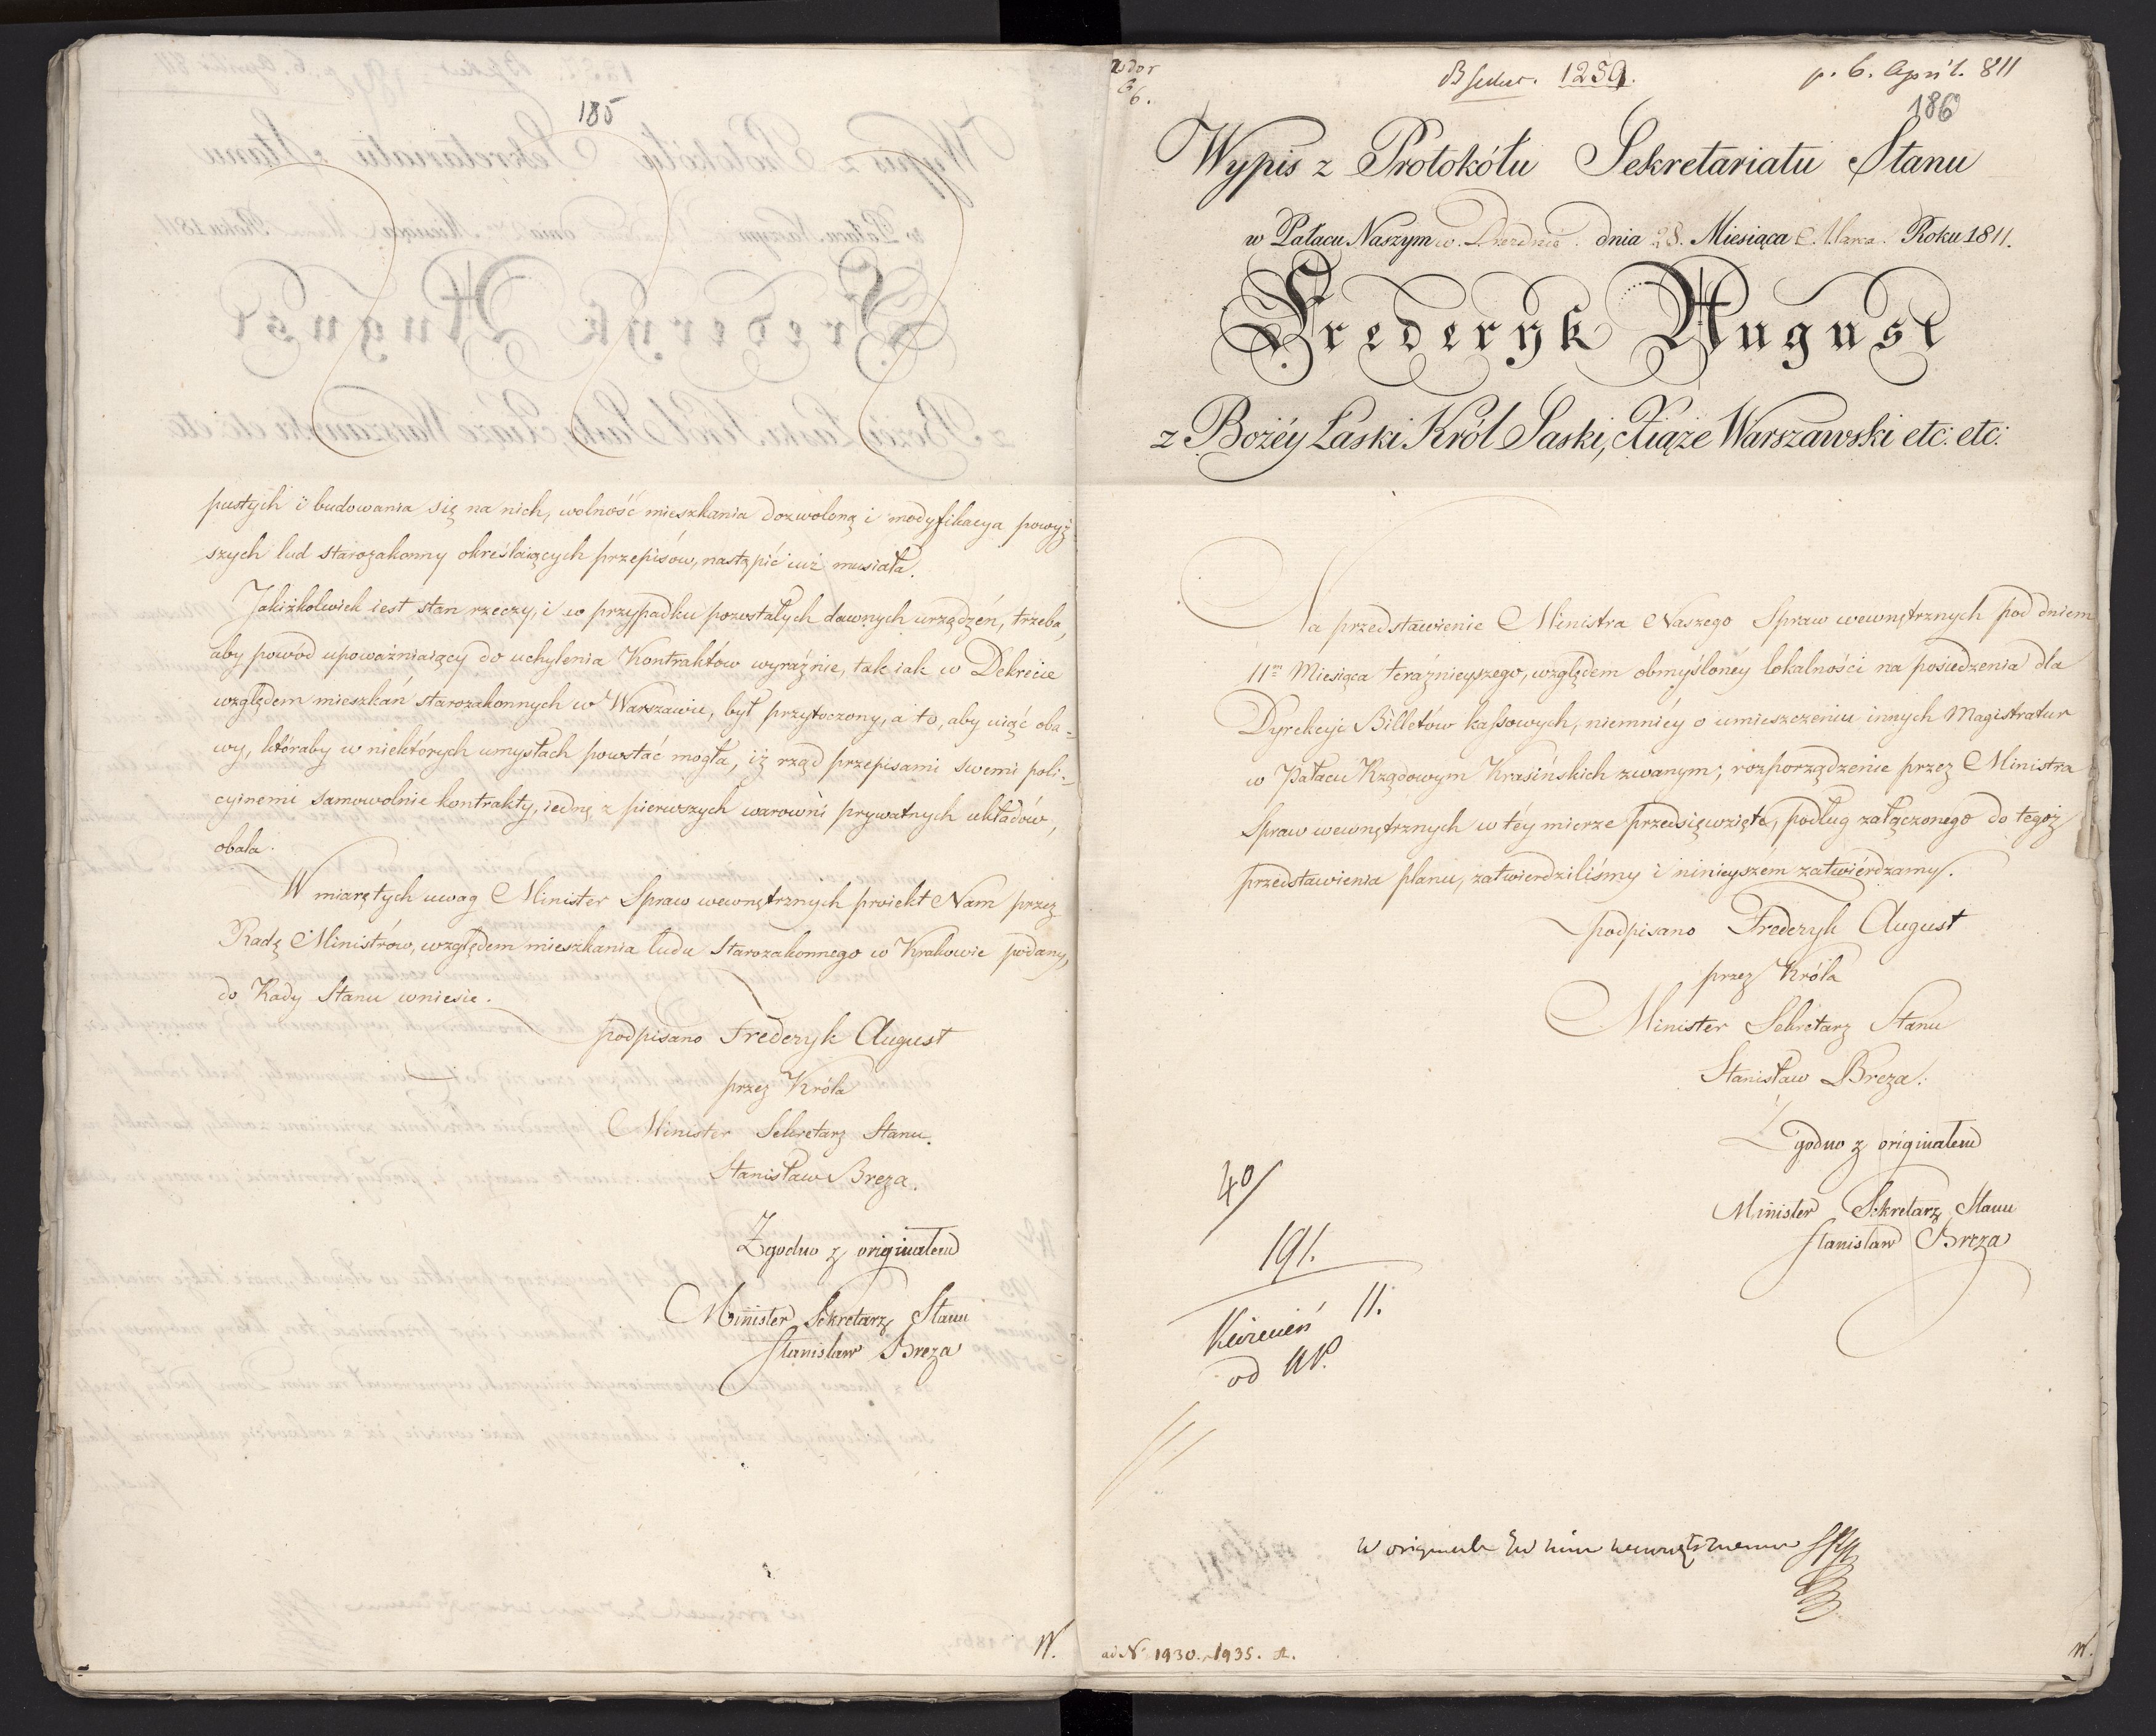 185
pustych i budowania się na nich, wolność mieszkania dozwoloną i modyfikacya powyż
szych lud starozakonny określaiących przepisów, nastąpić iuż musiała.
Jakiżkolwiek iest stan rzeczy, i w przypadku pozostałych dawnych urządzeń, trzeba,
aby powód upoważniaiący do uchylenia Kontraktow wyraźnie, tak iak w Dekrecie
względem mieszkań starozakonnych w Warszawie, był przytoczony, a to, aby uiąć oba-
wy, któraby w niektórych umysłach powstać mogła, iż rząd przepisami swemi poli-
cyinemi samowolnie kontrakty, iednę z pierwszych warowni prywatnych układów,
obala.
W miarę tych uwag Minister Spraw wewnętrznych proiekt Nam przez
Radę Ministrów, względem mieszkania ludu Starozakonnego w Krakowie podany,
do Rady Stanu wniesie.
podpisano Frederyk August
przez Króla
Minister Sekretarz Stanu.
Stanisław Breza.
Zgodno z originałem
Minister Sekretarz Stanu
Stanisław Breza
W.
1250.
p. 6. April. 811
186
Wypis z Protokółu Sekretariatu Stanu
w Pałacu Naszym w Dreźnie dnia 28. Miesiąca Marca Roku 1811.
Frederyk August
z Bożéy Łaski Król Saski, Xiąże Warszawski etc: etc:
Na przedstawienie Ministra Naszego Spraw wewnętrznych pod dniem
11m Miesiąca teraźnieyszego, względem obmyślonéy lokalności na posiedzenia dla
Dyrekcyi Billetów kassowych, niemniéy o umieszczeniu innych Magistratur
w Pałacu Rządowym Krasińskich zwanym; rozporządzenie przez Ministra
Spraw wewnętrznych w téy mierze przedsięwzięte, podług załączonego do tegoż
przedstawienia planu, zatwierdziliśmy i ninieyszém zatwiérdzamy.
podpisano Frederyk August
przez Króla
Minister Sekretarz Stanu
Stanisław Breza.
Zgodno z originałem
Minister Sekretarz Stanu
Stanisław Breza
40/
191.
Kwiecień 11.
od
w originale
ad No 1930. 1935. A.
W.